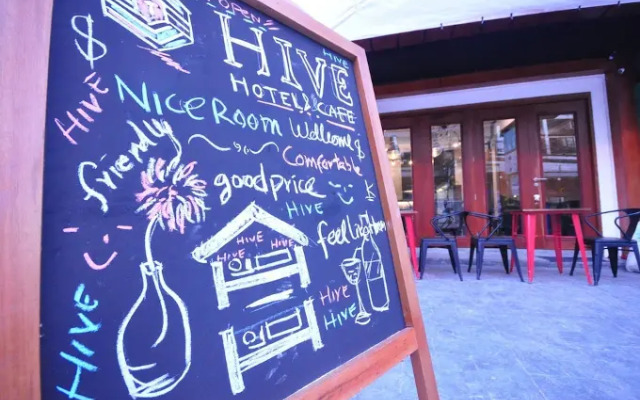 OPEN
$
HIVE
HIVE
HOTEL & CAFE
HIVE
NICE ROOM Wellcome $
friendly
Comfortable
good price
HIVE
HIVE HIVE
HIVE
HIVE
HIVE
HIVE
HIVE